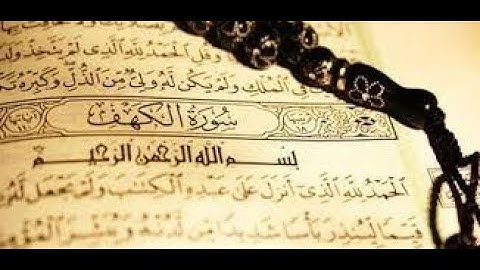 وَقُلِ ٱلْحَمْدُ لِلَّهِ ٱلَّذِى لَمْ يَتَّخِذْ
ٱلْمُلْكِ وَلَمْ يَكُن لَّهُۥ وَلِىٌّ مِّنَ ٱلذُّلِّ وَكَبِّرْهُ
سُورَةُ الكَهْف
بِسْمِ ٱللَّهِ ٱلرَّحْمَٰنِ ٱلرَّحِيمِ
ٱلْحَمْدُ لِلَّهِ ٱلَّذِىٓ أَنزَلَ عَلَىٰ عَبْدِهِ ٱلْكِتَٰبَ وَلَمْ يَجْعَل لَّهُۥ
قَيِّمًا لِّيُنذِرَ بَأْسًا شَدِيدًا مِّن لَّدُنْهُ وَيُبَشِّرَ